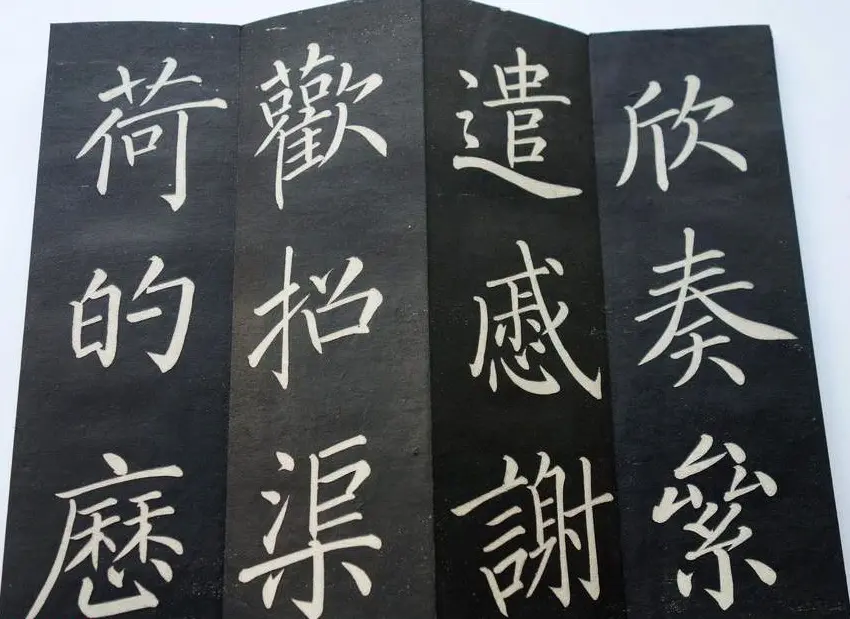 欣奏絫
遣慼謝
歡招渠
荷的歷